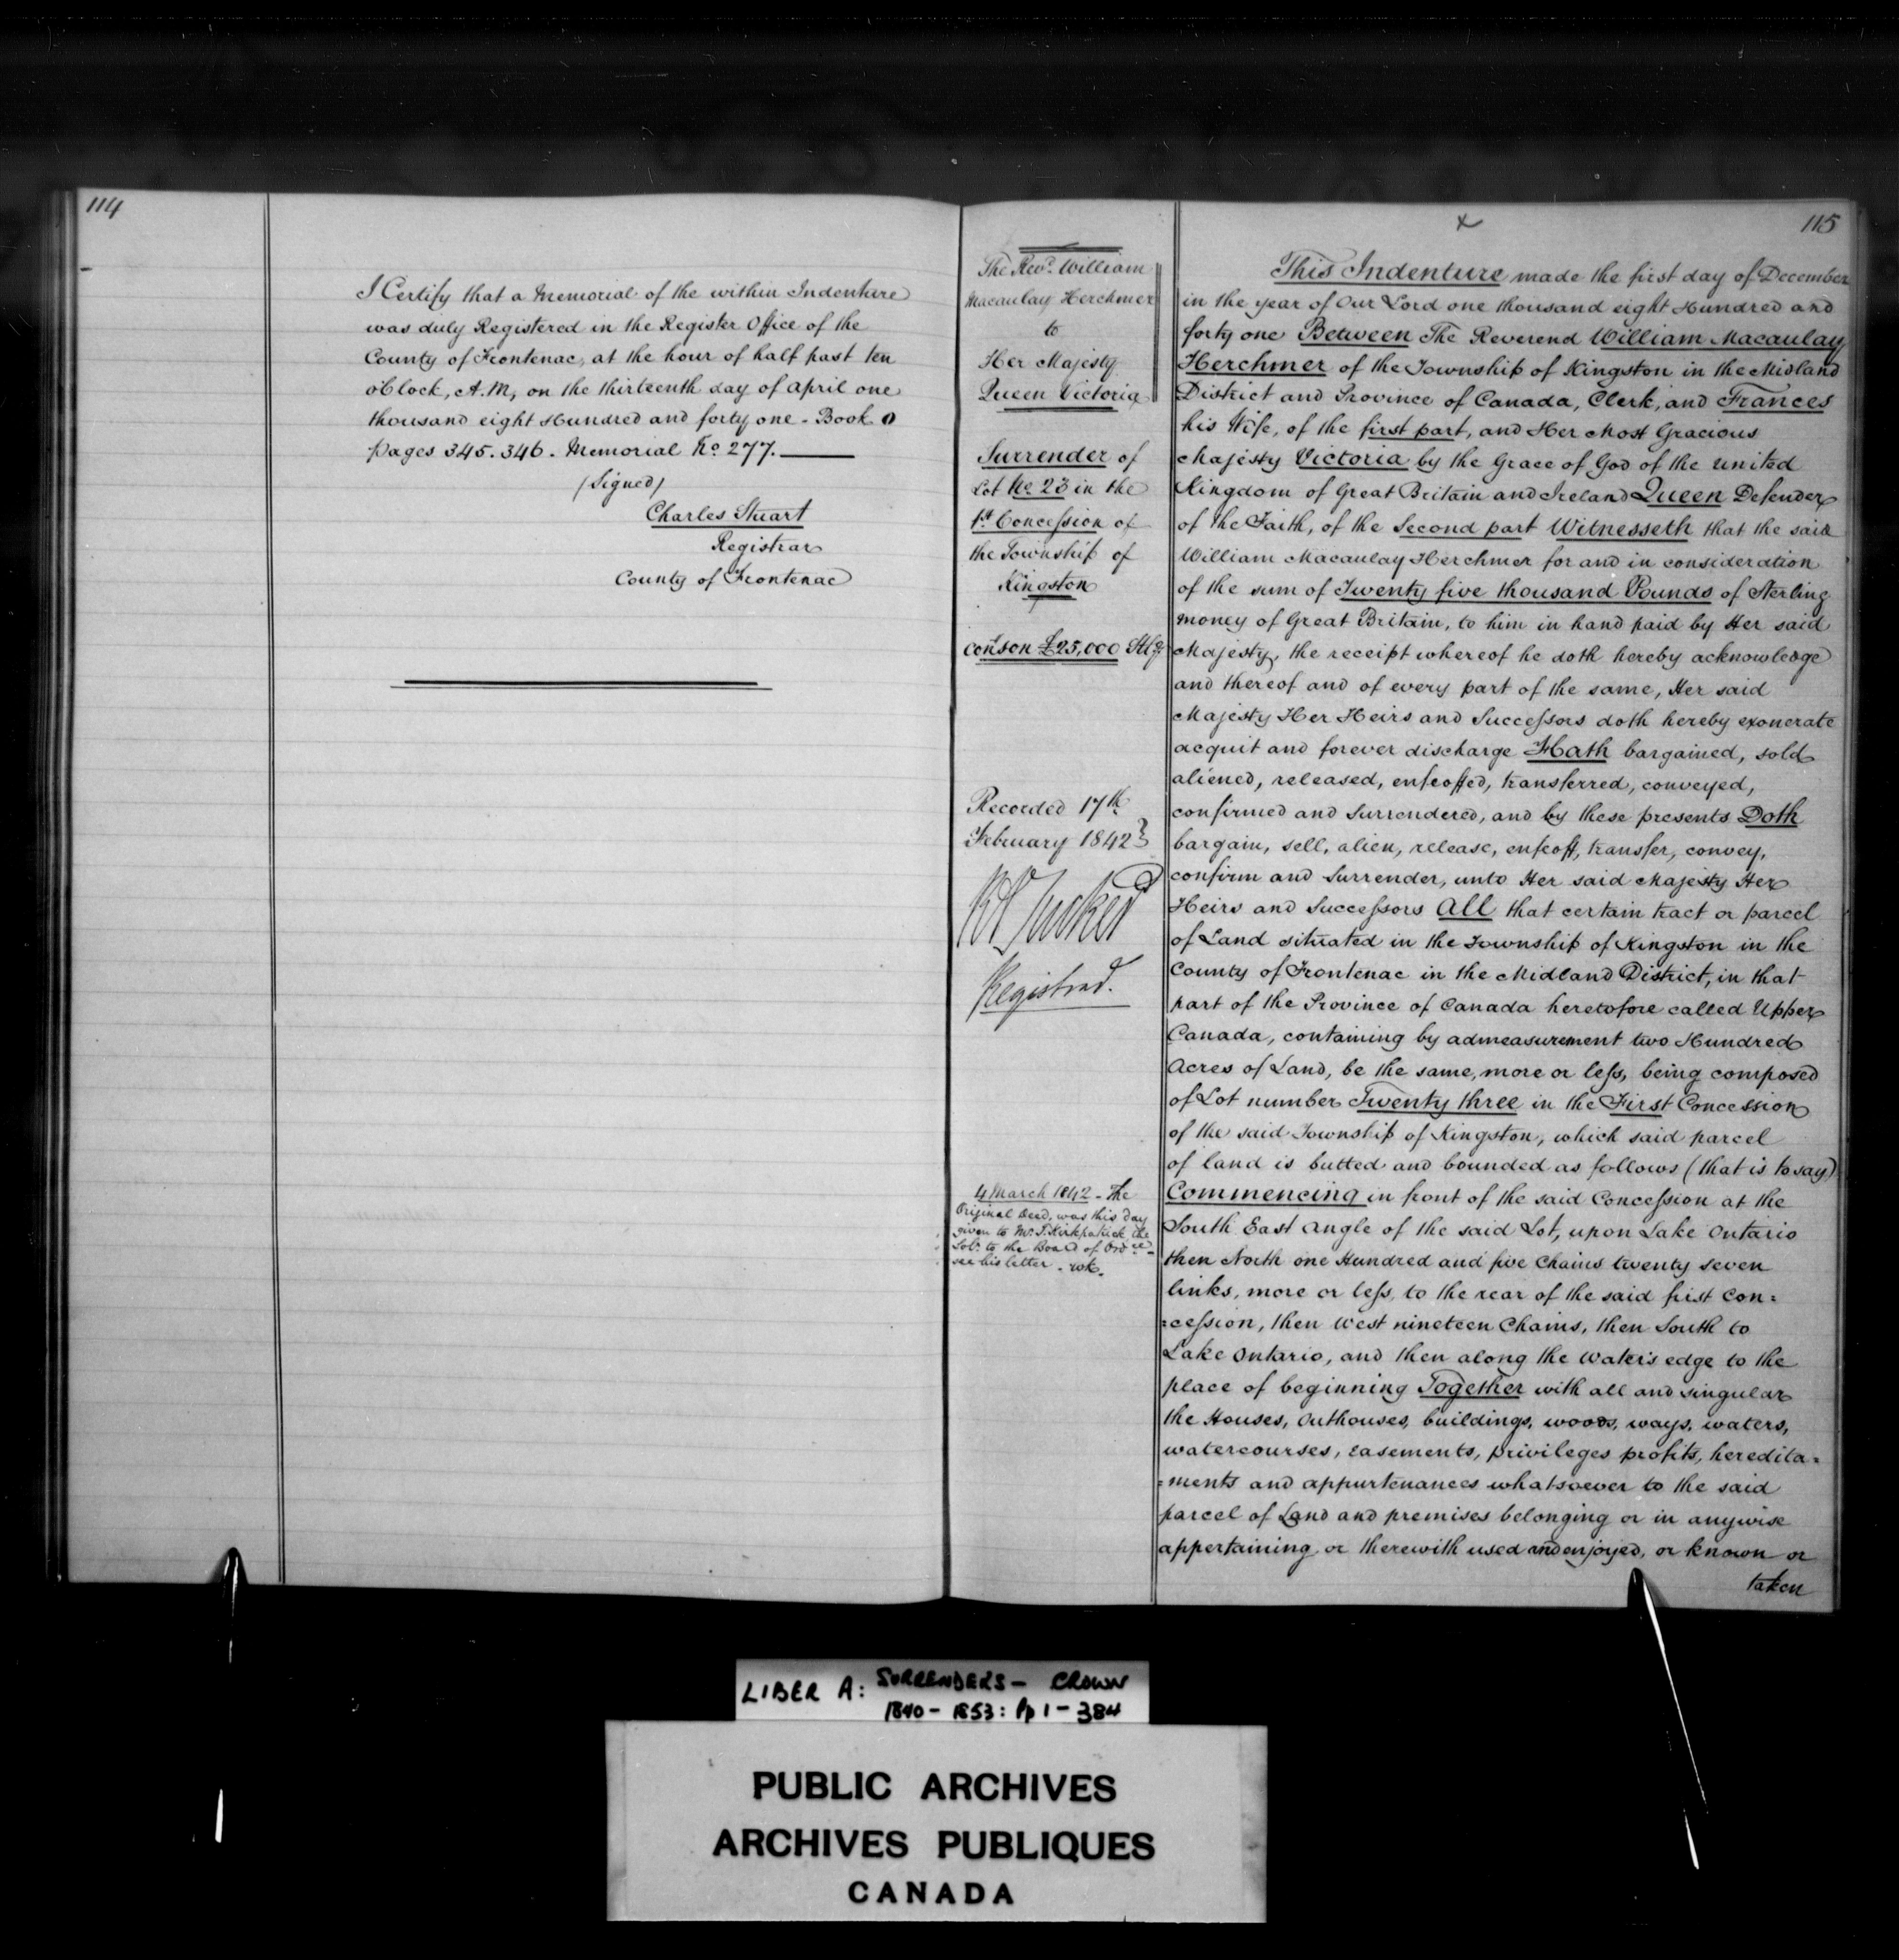 114
I Certify that a Memorial of the within Indenture
was duly Registered in the Register Office of the
County of Frontenac, at the hour of half past ten
o'Clock, A.M, on the thirteenth day of April one
thousand eight Hundred and forty one - Book O
pages 345. 346. Memorial No. 277.
(Signed)
Charles Stuart
Registrar
County of Frontenac
The Revd. William
Macaulay Herchmer
to
Her Majesty
Queen Victoria
Surrender of
Lot No 23 in the
1st Concession of
the Township of
Kingston
Conson £25,000 Stlg.
Recorded 17th
February 1842
RA Tucker
Registrar.
4 March 1842 - The
Original Deed, was this day
given to Mr. T. Kirkpatrick, the
Solr. to the Board of Ordce
see his letter.
115
This Indenture made the first day of December
in the year of Our Lord one thousand eight Hundred and
forty one Between The Reverend William Macaulay
Herchmer of the Township of Kingston in the Midland
District and Province of Canada, Clerk, and Frances
his Wife, of the first part, and Her Most Gracious
Majesty Victoria by the Grace of God of the United
Kingdom of Great Britain and Ireland Queen Defender
of the Faith, of the Second part Witnesseth that the said
William Macaulay Herchmer for and in consideration
of the sum of Twenty five thousand Pounds of Sterling
money of Great Britain, to him in hand paid by Her said
Majesty, the receipt whereof he doth hereby acknowledge
and thereof and of every part of the same, Her said
Majesty Her Heirs and Successors doth hereby exonerate
acquit and forever discharge Hath bargained, sold
aliened, released, enfeoffed, transferred, conveyed,
confirmed and Surrendered, and by these presents Doth
bargain, sell, alien, release, enfeoff, transfer, convey,
confirm and Surrender, unto Her said Majesty Her
Heirs and Successors All that certain tract or parcel
of Land situated in the Township of Kingston in the
County of Frontenac in the Midland District, in that
part of the Province of Canada heretofore called Upper
Canada, containing by admeasurement two Hundred
Acres of Land, be the same, more or less, being composed
of Lot number Twenty three in the First Concession
of the said Township of Kingston, which said parcel
of land is butted and bounded as follows (that is to say)
Commencing in front of the said Concession at the
South East Angle of the said Lot, upon Lake Ontario
then North one Hundred and five Chains twenty seven
links, more or less, to the rear of the said first Con=
=cession, then West nineteen Chains, then South to
Lake Ontario, and then along the Water's edge to the
place of beginning Together with all and singular
the Houses, Outhouses, buildings, woods, ways, waters,
watercourses, easements, privileges profits, heredita=
=ments and appurtenances whatsoever to the said
parcel of Land and premises belonging or in anywise
appertaining or therewith used and enjoyed, or known or
taken
LIBER A: SURRENDERS - CROWN
1840 - 1853: Pp 1 - 384
PUBLIC ARCHIVES
ARCHIVES PUBLIQUES
CANADA